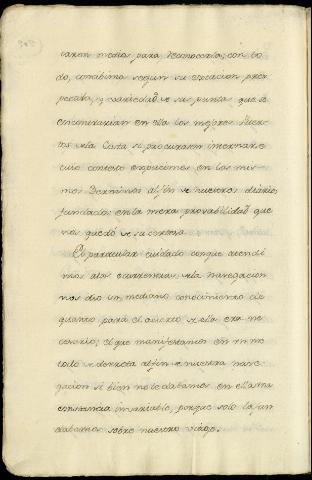 taron medio para reconocerla; con to-
do, concibimos segun su espocicion pros-
pectada, y variedad de sus puntas que se
encontrarian en ella los mejores Puer-
tos de la Costa si procurasen internarse
cuio contexto expusimos en los mis-
mos Terminos al fin de nuestros diarios,
fundados en la mera provabilidad que
nos quedó de su certeza.
El particular cuidado conque atendi-
mos a las ocurrencias de la navegacion
nos dio un mediano conocimiento de
quanto para el acierto de ella era ne-
cesario; el que manifestamos en un me-
todo de derrota al fin de nuestra nave-
gacion si bien no le dabamos en ella una
constancia invariable, porque solo la fun-
dabamos sobre nuestro viage.